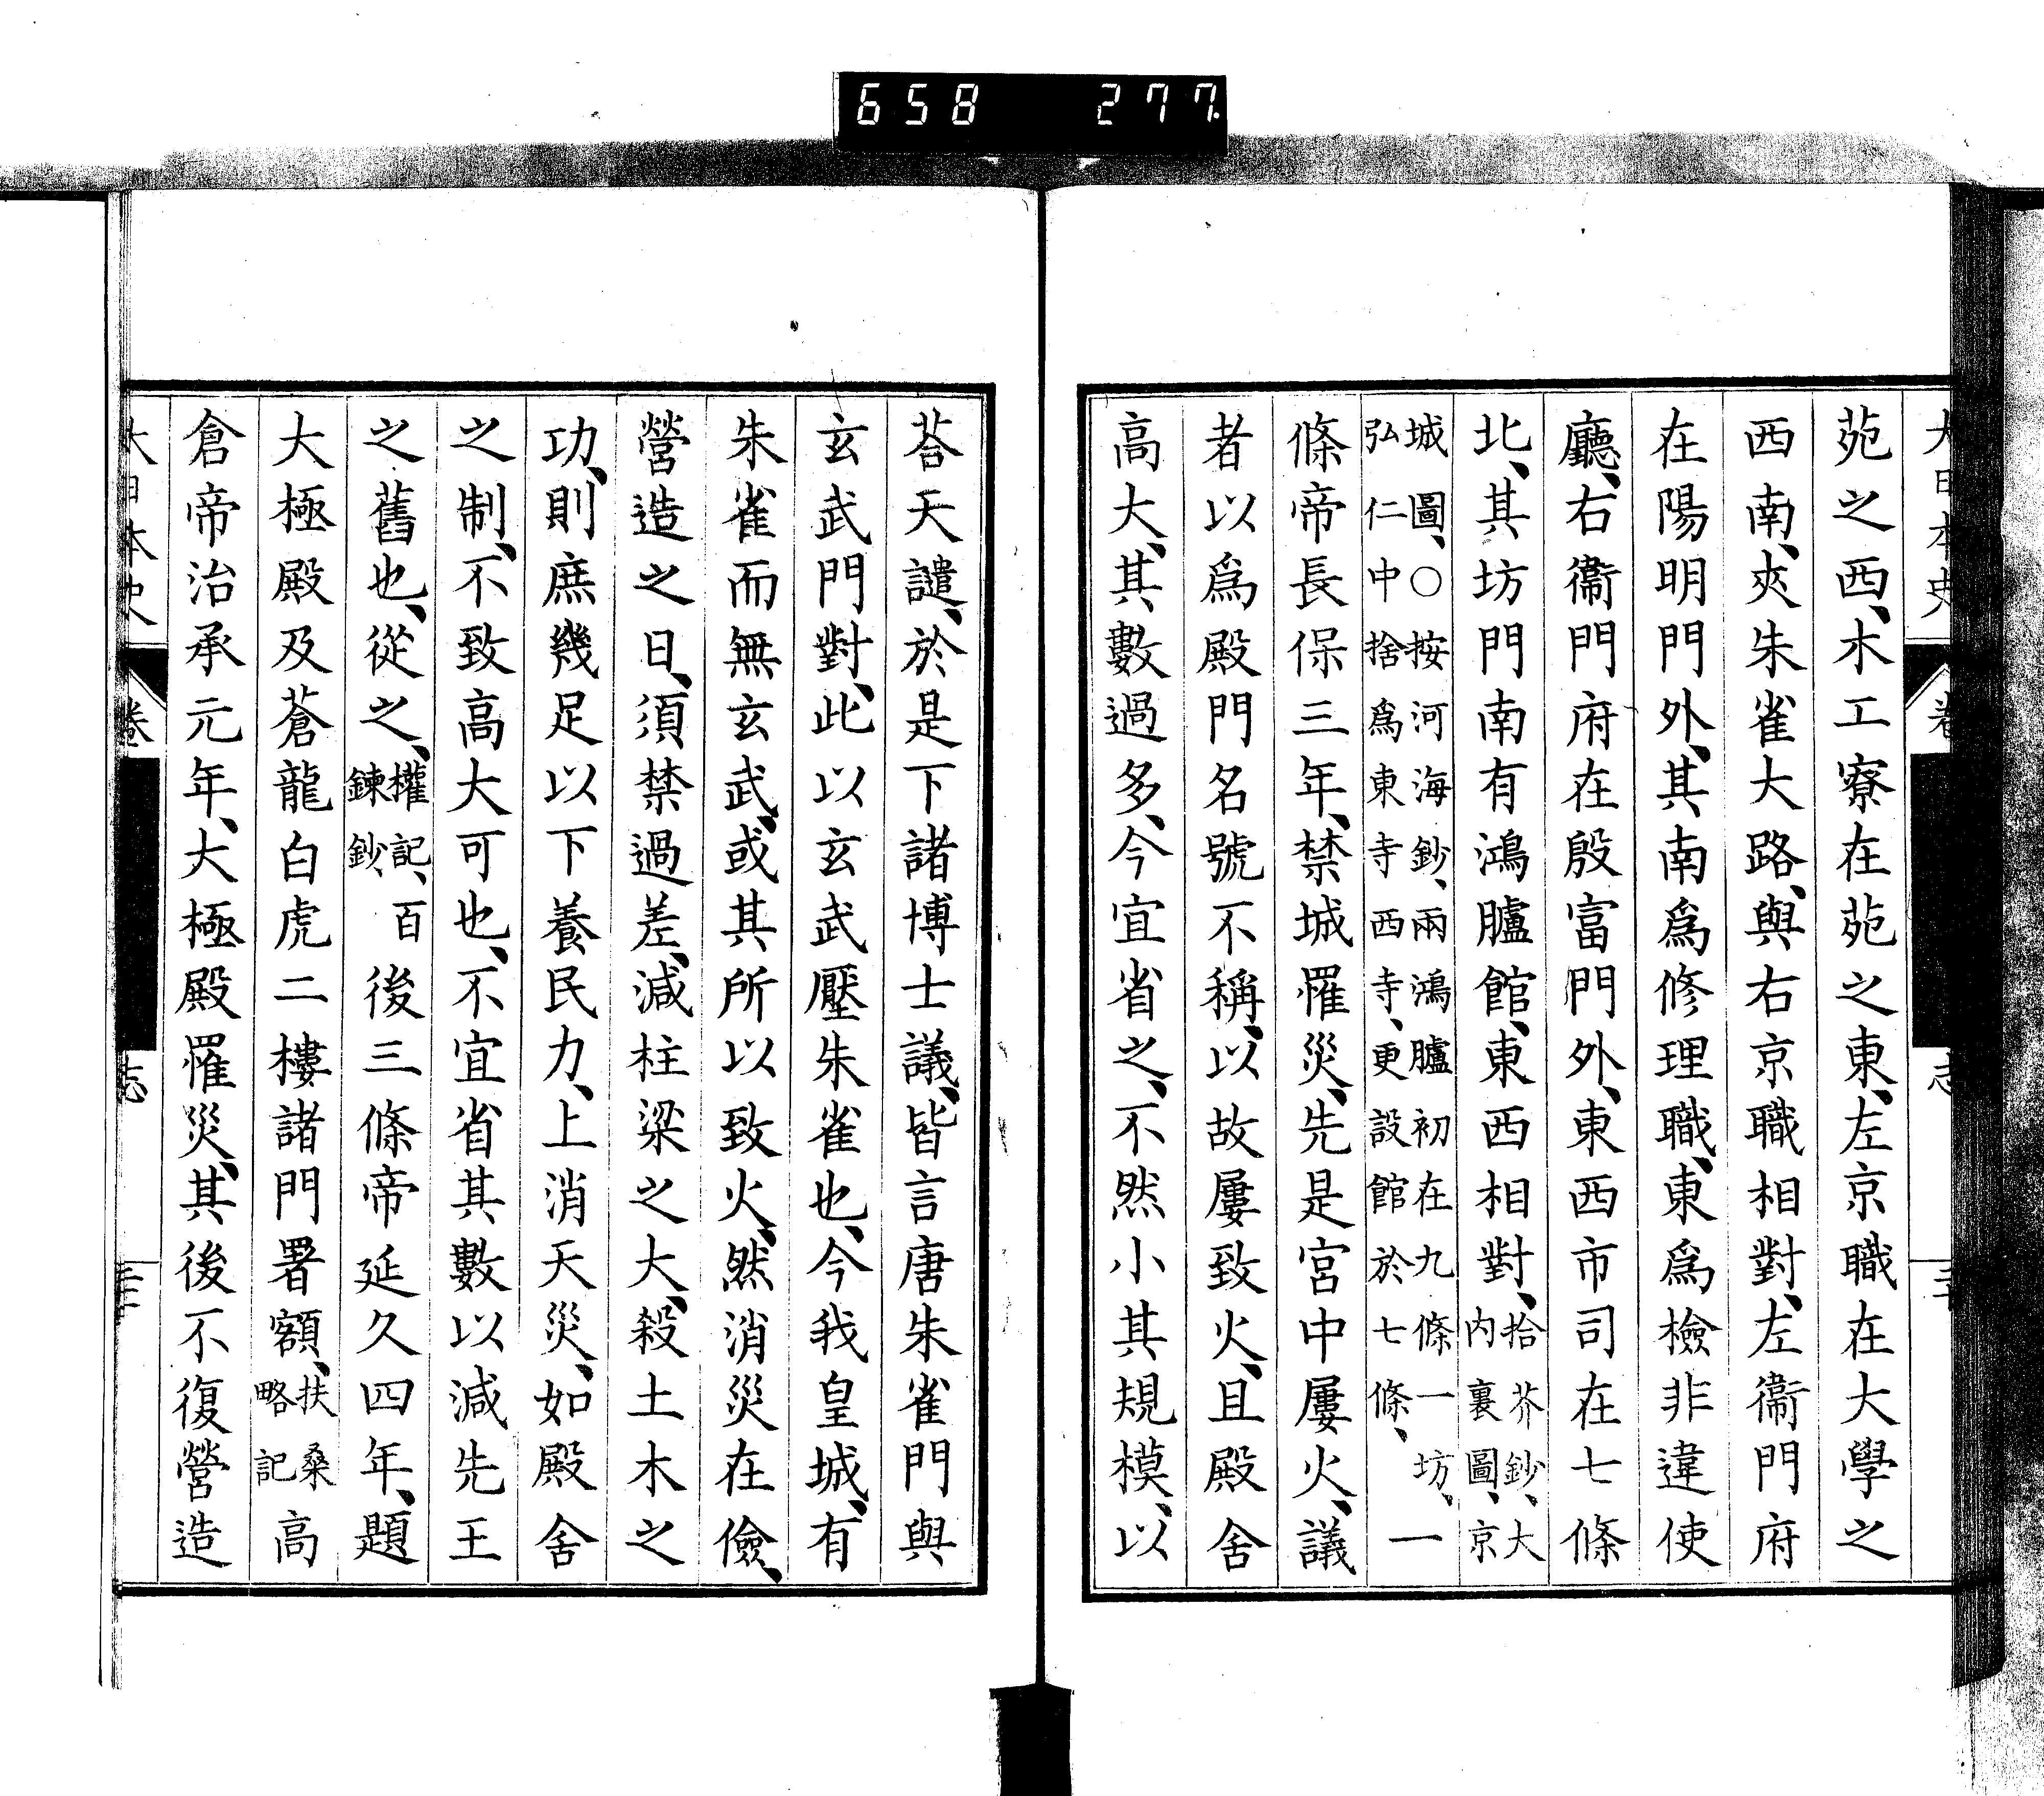 658 277
苑之西、木工寮在苑之東、左京職在大學之
西南、夾朱雀大路、與右京職相對、左衞門府
在陽明門外、其南爲修理職、東爲檢非違使
廳、右衞門府在殷富門外、東西市司在七條
北、其坊門南有鴻臚館、東西相對、拾芥鈔、大内裏圖、京
城圖、○按河海鈔、兩鴻臚初在九條一坊、弘仁中捨爲東寺西寺、更設館於七條、一
條帝長保三年、禁城罹災、先是宮中屢火、議
者以爲殿門名號不稱、以故屢致火、且殿舍
高大、其數過多、今宜省之、不然小其規模、以
荅天譴、於是下諸博士議、皆言唐朱雀門與
玄武門對、此以玄武壓朱雀也、今我皇城、有
朱雀而無玄武、或其所以致火、然消災在儉、
營造之日、須禁過差、減柱梁之大、殺土木之
功、則庶幾足以下養民力、上消天災、如殿舍
之制、不致高大可也、不宜省其數以減先王
之舊也、從之、權記、百鍊鈔、後三條帝延久四年、題
大極殿及蒼龍白虎二樓諸門署額、扶桑略記高
倉帝治承元年、大極殿罹災、其後不復營造
大日本史 卷 志